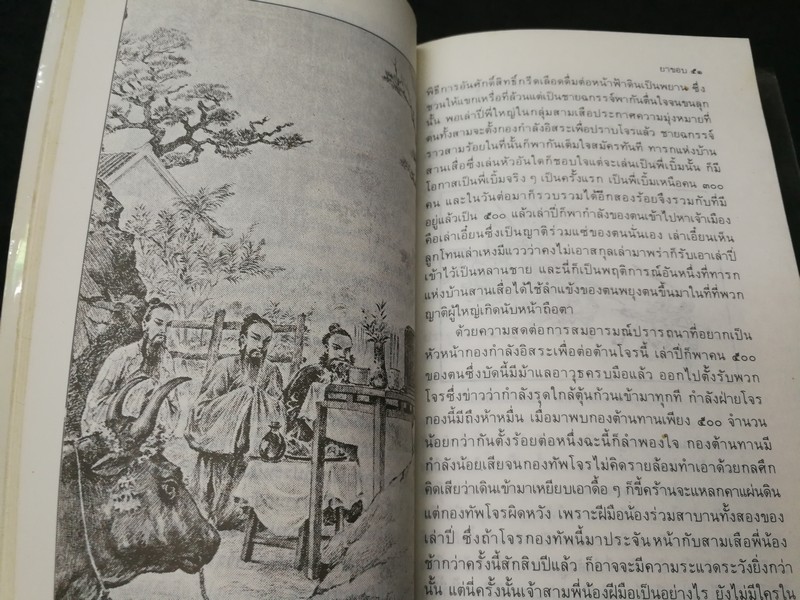 ยาขอบ ๕๑
พิธีการอันศักดิ์สิทธิ์กรีดเลือดดื่มต่อหน้าฟ้าดินเป็นพยาน ซึ่ง
ชวนให้แขกเหรื่อที่ล้วนแต่เป็นชายฉกรรจ์พากันตื่นใจจนขนลุก
นั้น พอเล่าปี่พี่ใหญ่ในกลุ่มสามเสือประกาศความมุ่งหมายที่
ตนทั้งสามจะตั้งกองกำลังอิสระเพื่อปราบโจรแล้ว ชายฉกรรจ์
ราวสามร้อยในที่นั้นก็พากันเต็มใจสมัครทันที ทารกแห่งบ้าน
สานเสื่อซึ่งเล่นหัวอันใดก็ชอบใจแต่จะเล่นเป็นพี่เบิ้มนั้น ก็มี
โอกาสเป็นพี่เบิ้มจริง ๆ เป็นครั้งแรก เป็นพี่เบิ้มเหนือคน ๓๐๐
คน และในวันต่อมาก็รวบรวมได้อีกสองร้อยจึงรวมกับที่มี
อยู่แล้วเป็น ๕๐๐ แล้วเล่าปี่ก็พากำลังของตนเข้าไปหาเจ้าเมือง
คือเล่าเอี๋ยนซึ่งเป็นญาติร่วมแซ่ของตนนั้นเอง เล่าเอี๋ยนเห็น
ลูกโทนเล่าเหงมีแววว่าคงไม่เอาสกุลเล่ามาพร่าก็รับเอาเล่าปี่
เข้าไว้เป็นหลานชาย และนี่ก็เป็นพฤติการณ์อันหนึ่งที่ทารก
แห่งบ้านสานเสื่อได้ใช้ลำแข้งของตนพยุงตนขึ้นมาในที่ที่พวก
ญาติผู้ใหญ่เกิดนับหน้าถือตา
ด้วยความสดต่อการสมอารมณ์ปรารถนาที่อยากเป็น
หัวหน้ากองกำลังอิสระเพื่อต่อต้านโจรนี้ เล่าปี่ก็พาคน ๕๐๐
ของตนซึ่งบัดนี้มีม้าแลอาวุธครบมือแล้ว ออกไปตั้งรับพวก
โจรซึ่งข่าวว่ากำลังรุดใกล้ตุ้นก้วนเข้ามาทุกที กำลังฝ่ายโจร
กองนี้มีถึงห้าหมื่น เมื่อมาพบกองต้านทานเพียง ๕๐๐ จำนวน
น้อยกว่ากันตั้งร้อยต่อหนึ่งฉะนี้ก็ลำพองใจ กองต้านทานมี
กำลังน้อยเสียจนกองทัพโจรไม่คิดรายล้อมทำเอาด้วยกลศึก
คิดเสียว่าเดินเข้ามาเหยียบเอาดื้อ ๆ ก็ขี้คร้านจะแหลกคาแผ่นดิน
แต่กองทัพโจรผิดหวัง เพราะฝีมือน้องร่วมสาบานทั้งสองของ
เล่าปี่ ซึ่งถ้าโจรกองทัพนี้มาประจันหน้ากับสามเสือพี่น้อง
ช้ากว่าครั้งนี้สักสิบปีแล้ว ก็อาจจะมีความระแวดระวังยิ่งกว่า
นั้น แต่นี่ครั้งนั้นเจ้าสามพี่น้องฝีมือเป็นอย่างไร ยังไม่มีใครใน